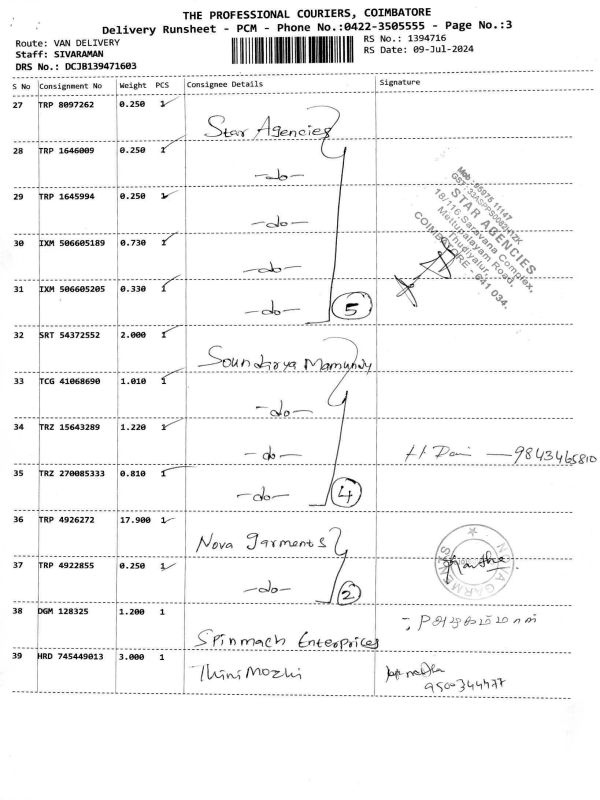 THE PROFESSIONAL COURIERS, COIMBATORE
Delivery Runsheet - PCM - Phone No.:0422-3505555 - Page No.:3
Route: VAN DELIVERY
RS No.: 1394716
Staff: SIVARAMAN
RS Date: 09-Jul-2024
DRS No.: DCJB139471603
S No Consignment No Weight PCS Consignee Details Signature
27 TRP 8097262 0.250 1
Star Agencies
28 TRP 1646009 0.250 1
-do-
29 TRP 1645994 0.250 1
-do-
30 IXM 506605189 0.730 1
-do-
31 IXM 506605205 0.330 1
-do- 5
Mob: 95975 11147
STAR AGENCIES
18/116, Saravana Complex,
Mettupalayam Road,
Thudiyalur,
COIMBATORE - 641 034.
32 SRT 54372552 2.000 1
Soundarya Mamundy
33 TCG 41068690 1.010 1
-do-
34 TRZ 15643289 1.220 1
-do- 9843465810
35 TRZ 270085333 0.810 1
-do- 4
36 TRP 4926272 17.900 1
Nova garments
37 TRP 4922855 0.250 1
-do- 2
NOVA GARMENTS
38 DGM 128325 1.200 1
Spinmach Enterprices
39 HRD 745449013 3.000 1
ThiniMozhi
9500344477